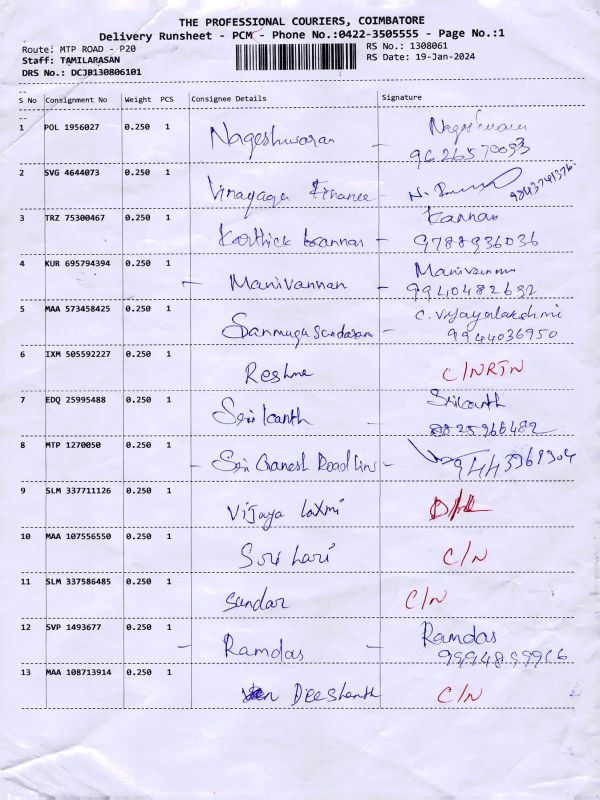 THE PROFESSIONAL COURIERS, COIMBATORE
Delivery Runsheet - PCM - Phone No.:0422-3505555 - Page No.:1
Route: MTP ROAD - P20 RS No.: 1308061
Staff: TAMILARASAN RS Date: 19-Jan-2024
DRS No.: DCJB130806101
S No Consignment No Weight PCS Consignee Details Signature
1 POL 1956027 0.250 1 Nageshwaran Nageshwaran
9626570093
2 SVG 4644073 0.250 1 Vinayaga Finance - 9843741376
3 TRZ 75300467 0.250 1 Karthick kannan - Kannan
9788936036
4 KUR 695794394 0.250 1 - Manivannan - Manivannan
9940482632
5 MAA 573458425 0.250 1 Sanmuga Sundaram - C. Vijayalakshmi
9944036950
6 IXM 505592227 0.250 1 Reshma C/NRTN
7 EDQ 25995488 0.250 1 Srikanth Srikanth
8825966482
8 MTP 1270050 0.250 1 - Sri Ganesh Road Lins - 9443369304
9 SLM 337711126 0.250 1 Vijaya laxmi D/L
10 MAA 107556550 0.250 1 Sri hari C/N
11 SLM 337586485 0.250 1 Sundar C/N
12 SVP 1493677 0.250 1 - Ramdas - Ramdas
9994899966
13 MAA 108713914 0.250 1 Deeshanth C/N